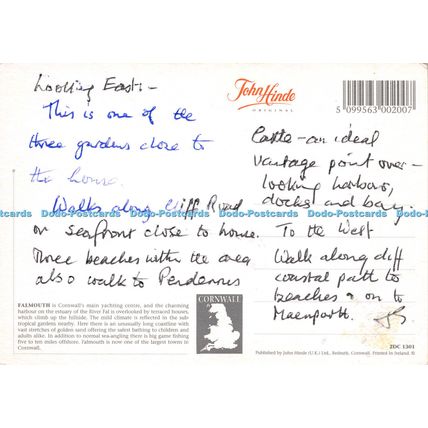 Looking East:-
This is one of the
three gardens close to
the house.
Walks along Cliff Road
or seafront close to house.
Three beaches within the area
also walk to Pendennis
Castle - an ideal
vantage point over -
looking harbour,
docks and bay.
To the West
Walk along cliff
coastal path to
beaches & on to
Maenporth.
John Hinde
ORIGINAL
5 099563 002007
Dodo-Postcards Dodo-Postcards Dodo-Postcards Dodo-Postcards Dodo-Postcards Dodo-Postcards
FALMOUTH is Cornwall's main yachting centre, and the charming
harbour on the estuary of the River Fal is overlooked by terraced houses,
which climb up the hillside. The mild climate is reflected in the sub-
tropical gardens nearby. Here there is an unusually long coastline with
vast stretches of golden sand offering the safest bathing to children and
adults alike. In addition to normal sea-angling there is big game fishing
five to ten miles offshore. Falmouth is now one of the largest towns in
Cornwall.
CORNWALL
2DC 1301
Published by John Hinde (U.K.) Ltd., Redruth, Cornwall. Printed in Ireland. ®